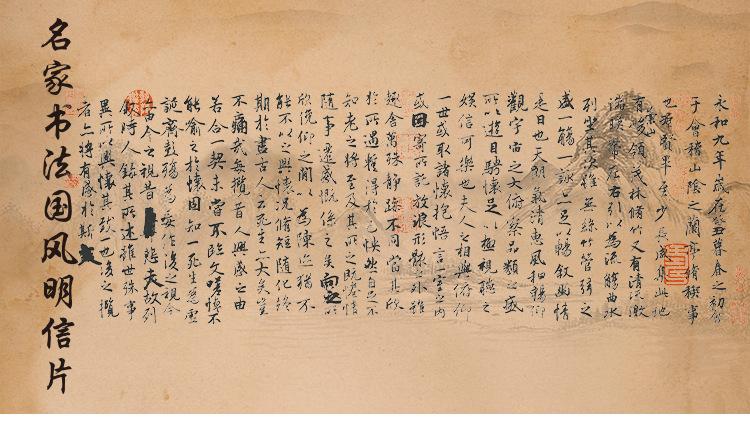 名家书法国风明信片
永和九年歲在癸丑暮春之初會
于會稽山陰之蘭亭脩禊事
也群賢畢至少長咸集此地
有崇山峻領茂林脩竹又有清流激
湍暎帶左右引以為流觴曲水
列坐其次雖無絲竹管弦之
盛一觴一詠亦足以暢叙幽情
是日也天朗氣清惠風和暢仰
觀宇宙之大俯察品類之盛
所以遊目騁懷足以極視聽之
娛信可樂也夫人之相與俯仰
一世或取諸懷抱悟言一室之內
或因寄所託放浪形骸之外雖
趣舍萬殊靜躁不同當其欣
於所遇蹔得於己怏然自足不
知老之將至及其所之既惓情
隨事遷感慨係之矣向之所
欣俛仰之閒以為陳迹猶不
能不以之興懷況脩短隨化終
期於盡古人云死生亦大矣豈
不痛哉每攬昔人興感之由
若合一契未嘗不臨文嗟悼不
能喻之於懷固知一死生為虛
誕齊彭殤為妄作後之視今
亦由今之視昔悲夫故列
敘時人錄其所述雖世殊事
異所以興懷其致一也後之攬
者亦將有感於斯文